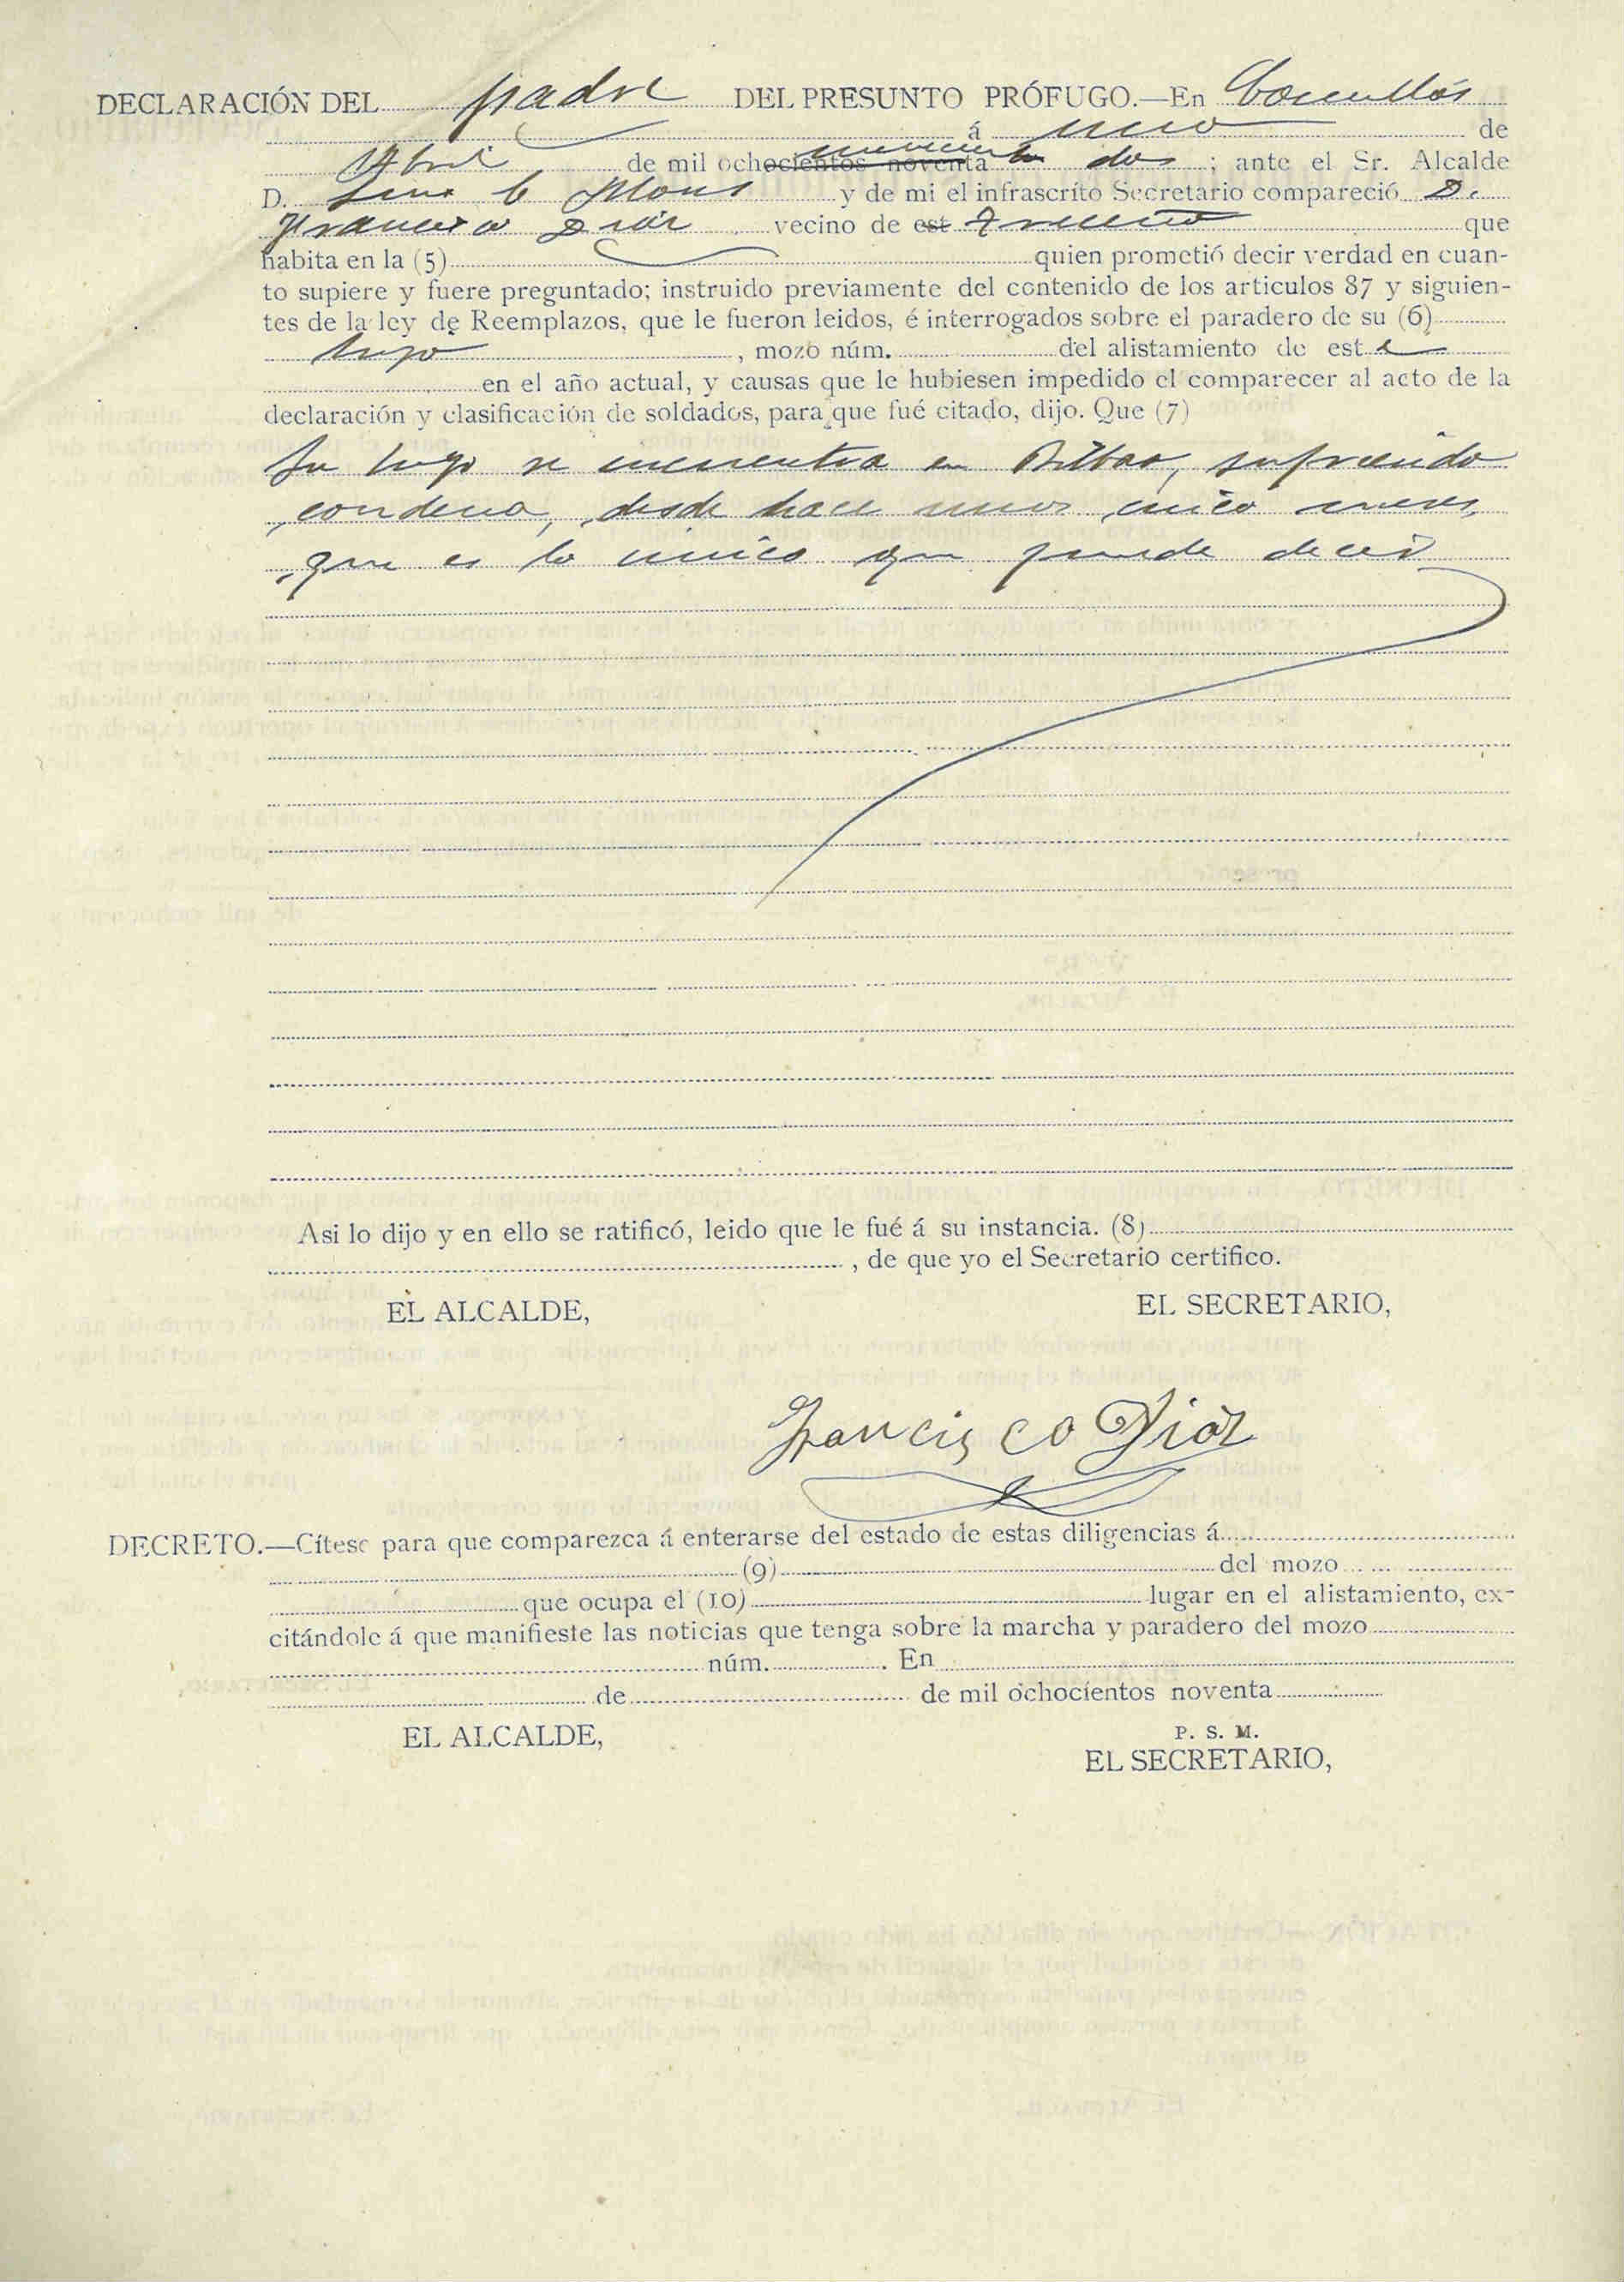 DECLARACIÓN DEL padre DEL PRESUNTO PRÓFUGO.—En Comillas
á uno de
Abril de mil ochocientos noventa novecientos dos; ante el Sr. Alcalde
D. y de mi el infrascrito Secretario compareció D.
Francisco Diaz vecino de est Treceño que
habita en la (5) quien prometió decir verdad en cuan-
to supiere y fuere preguntado; instruido previamente del contenido de los articulos 87 y siguien-
tes de la ley de Reemplazos, que le fueron leidos, é interrogados sobre el paradero de su (6)
hijo, mozo núm. del alistamiento de este
en el año actual, y causas que le hubiesen impedido el comparecer al acto de la
declaración y clasificación de soldados, para que fué citado, dijo. Que (7)
Su hijo se encuentra en Bilbao, sufriendo
condena, desde hace unos cinco meses,
que es lo unico que puede decir
Asi lo dijo y en ello se ratificó, leido que le fué á su instancia. (8)
, de que yo el Secretario certifico.
EL ALCALDE, EL SECRETARIO,
Francisco Diaz
DECRETO.—Cítese para que comparezca á enterarse del estado de estas diligencias á
(9) del mozo
que ocupa el (10) lugar en el alistamiento, ex-
citándole á que manifieste las noticias que tenga sobre la marcha y paradero del mozo
núm. . En
de de mil ochocientos noventa
EL ALCALDE, P. S. M.
EL SECRETARIO,